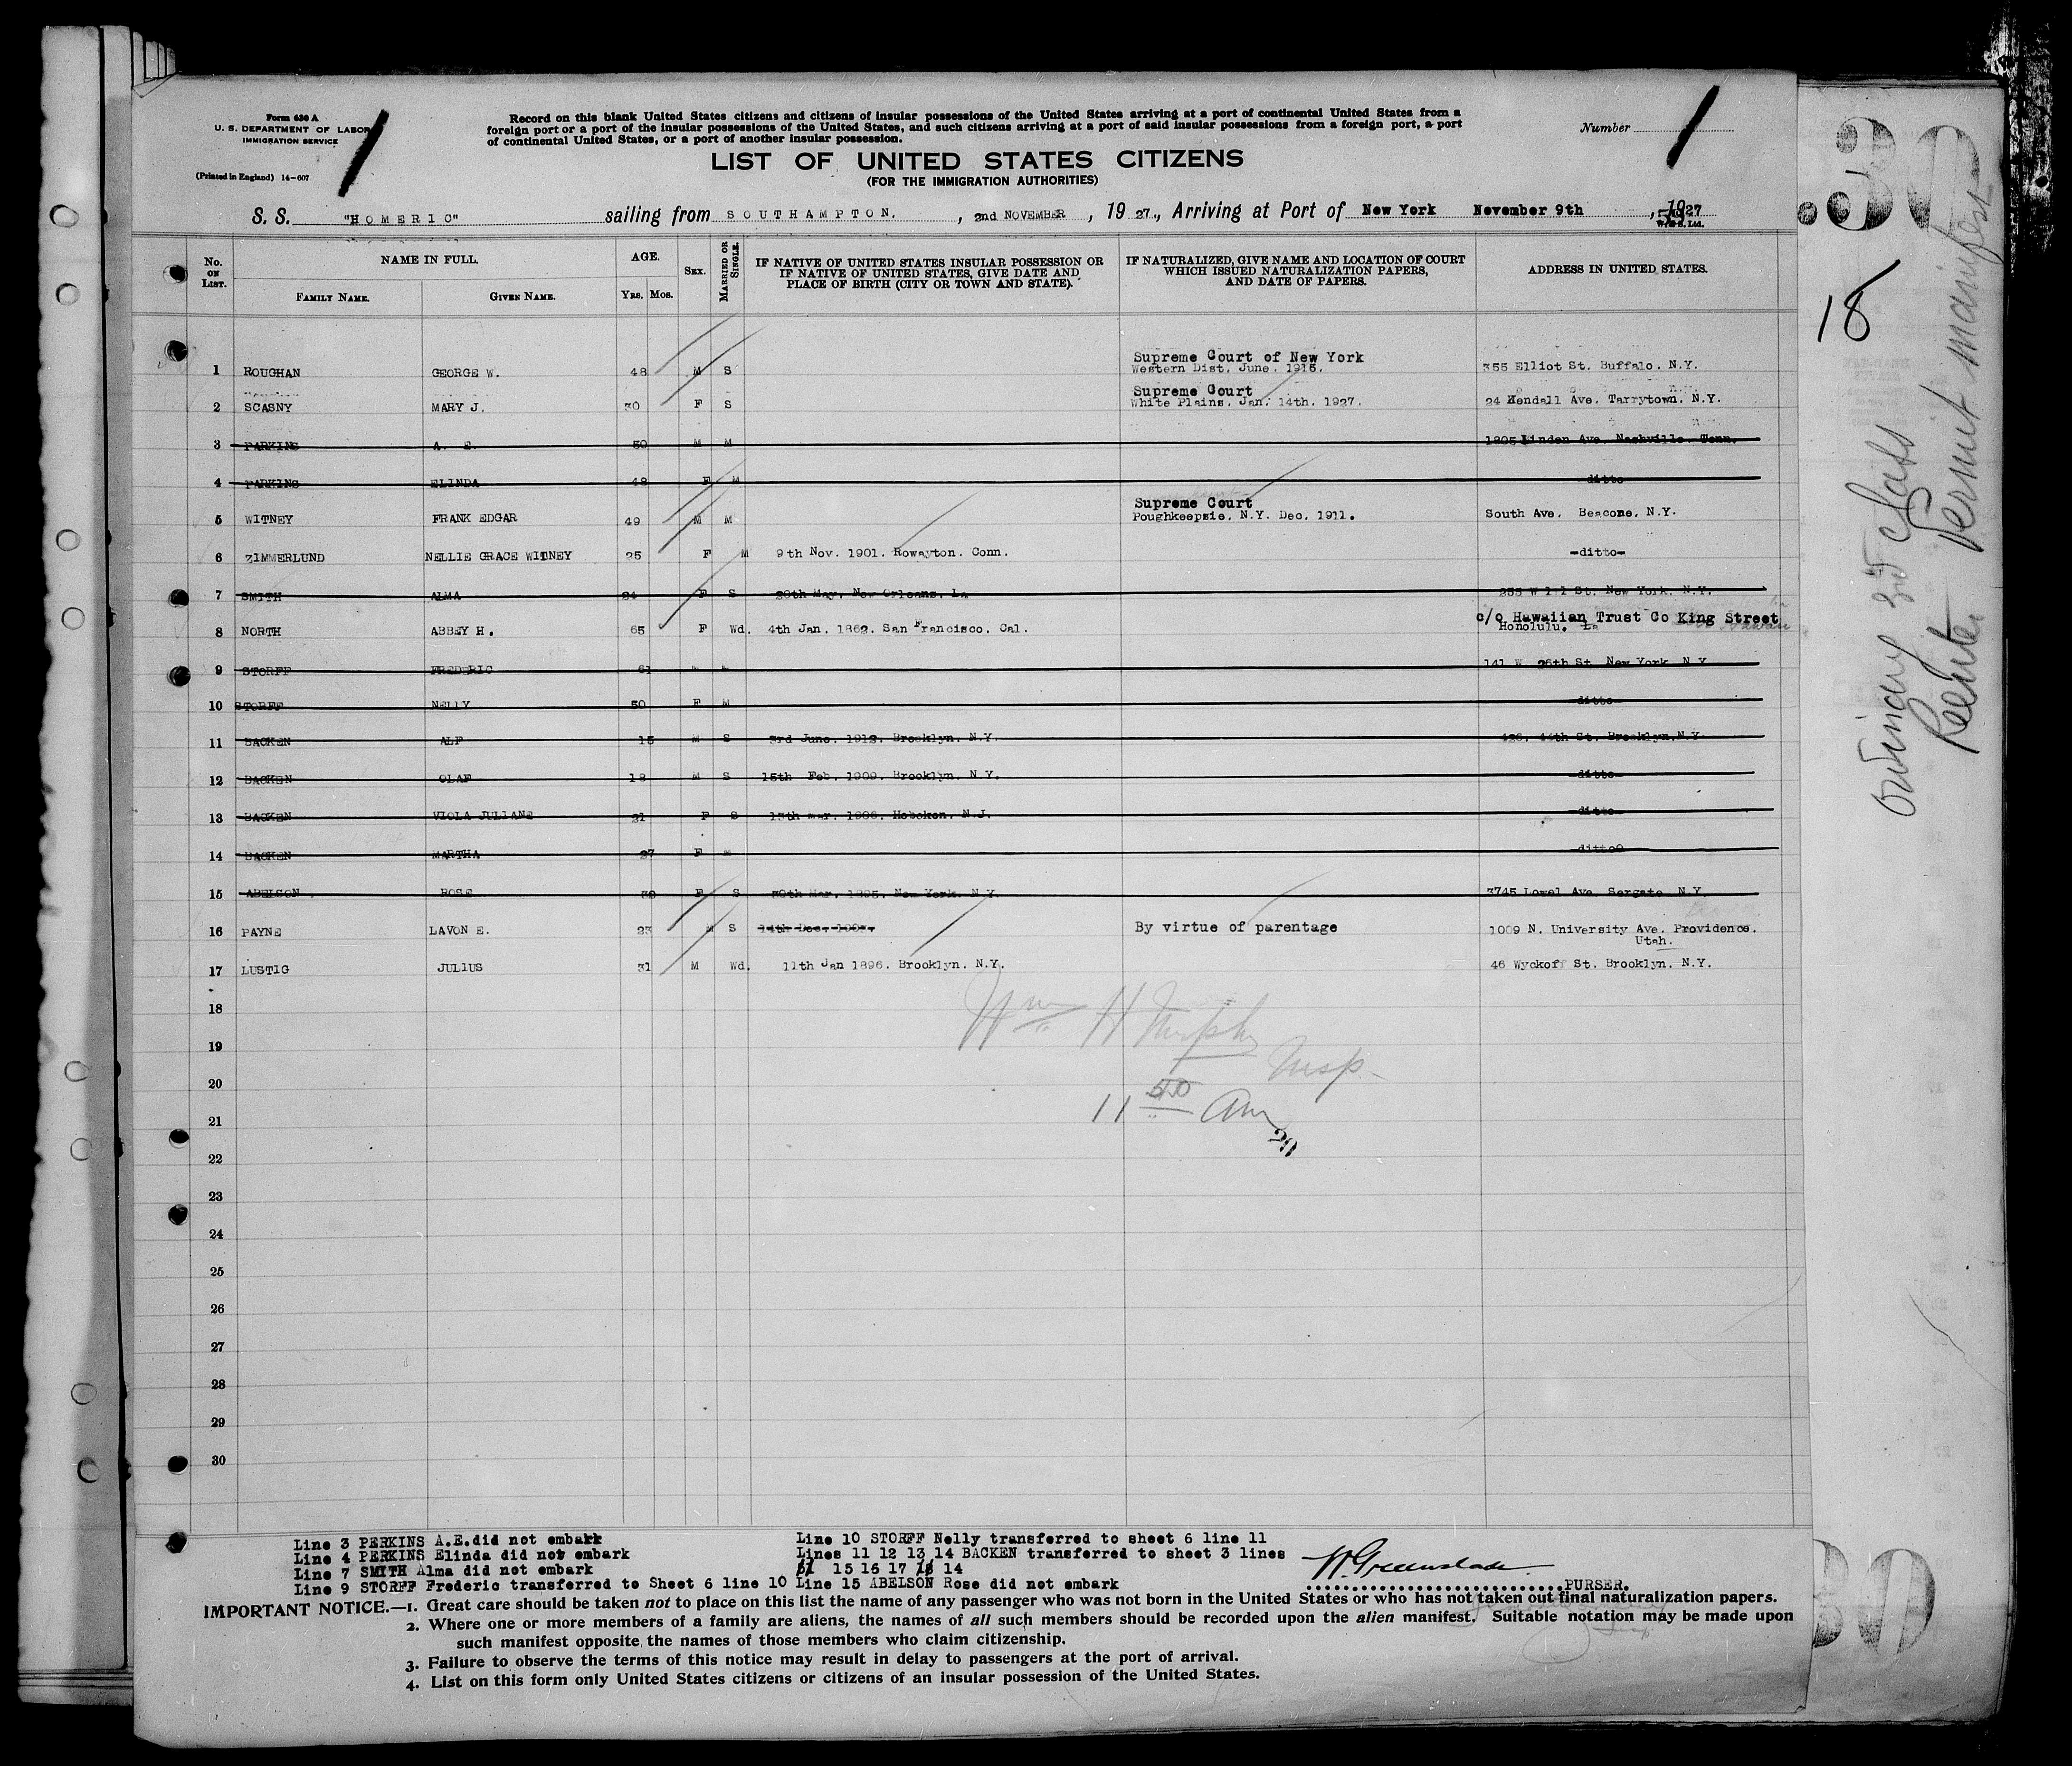 Form 630 A
U. S. DEPARTMENT OF LABOR
IMMIGRATION SERVICE
(Printed in England) 14-607
1
Record on this blank United States citizens and citizens of insular possessions of the United States arriving at a port of continental United States from a
foreign port or a port of the insular possessions of the United States, and such citizens arriving at a port of said insular possessions from a foreign port, a port
of continental United States, or a port of another insular possession.
Number 1
LIST OF UNITED STATES CITIZENS
(FOR THE IMMIGRATION AUTHORITIES)
S. S. "HOMERIC" sailing from SOUTHAMPTON. , 2nd NOVEMBER , 1927., Arriving at Port of New York November 9th , 1927
No. ON LIST. NAME IN FULL. FAMILY NAME. GIVEN NAME. AGE. YRS. MOS. SEX. MARRIED OR SINGLE. IF NATIVE OF UNITED STATES INSULAR POSSESSION OR IF NATIVE OF UNITED STATES, GIVE DATE AND PLACE OF BIRTH (CITY OR TOWN AND STATE). IF NATURALIZED, GIVE NAME AND LOCATION OF COURT WHICH ISSUED NATURALIZATION PAPERS, AND DATE OF PAPERS. ADDRESS IN UNITED STATES.
Supreme Court of New York
1 ROUGHAN GEORGE W. 48 M S Western Dist. June. 1915. 355 Elliot St. Buffalo. N.Y.
Supreme Court
2 SCASNY MARY J. 30 F S White Plains. Jan. 14th. 1927. 24 Kendall Ave. Tarrytown. N.Y.
3 PARKINS A. E. 50 M M 1805 Linden Ave. Nashville. Tenn.
4 PARKINS ELINDA 48 F M ditto
Supreme Court
5 WITNEY FRANK EDGAR 49 M M Poughkeepsie. N.Y. Dec. 1911. South Ave. Beacone. N.Y.
6 ZIMMERLUND NELLIE GRACE WITNEY 25 F M 9th Nov. 1901. Rowayton. Conn. -ditto-
7 SMITH ALMA 24 F S 20th May. New Orleans. La 255 W 11 St. New York. N.Y.
c/o Hawaiian Trust Co King Street
8 NORTH ABBEY H. 65 F Wd. 4th Jan. 1862. San Francisco. Cal. Honolulu.
9 STORFF FREDERIC 61 M M 141 W. 26th St. New York. N.Y
10 STORFF NELLY 50 F M ditto
11 BACKEN ALF 15 M S 3rd June. 1912. Brooklyn. N.Y. 426. 44th St. Brooklyn.N.Y
12 BACKEN OLAF 18 M S 15th Feb. 1909. Brooklyn. N.Y. ditto
13 BACKEN VIOLA JULIANE 21 F S 15th Mar. 1906. Hoboken. N.J. ditto
14 BACKEN MARTHA 27 F M ditto
15 ABELSON. ROSE 32 F S 30th Mar. 1895. New York. N.Y. 3745 Lowel Ave. Sergate. N.Y
16 PAYNE LAVON E. 23 M S 14th Dec. By virtue of parentage 1009 N. University Ave. Providence.
Utah.
17 LUSTIG JULIUS 31 M Wd. 11th Jan 1896. Brooklyn. N.Y. 46 Wyckoff St. Brooklyn. N.Y.
18
Wm H Murphy
19
Insp.
20
11 50 Am
21
20
22
23
24
25
26
27
28
29
30
Line 3 PERKINS A.E.did not embark
Line 4 PERKINS Elinda did not embark
Line 7 SMITH Alma did not embark
Line 9 STORFF Frederic transferred to Sheet 6 line 10
Line 10 STORFF Nelly transferred to sheet 6 line 11
Lines 11 12 13 14 BACKEN transferred to sheet 3 lines
15 16 17 14
Line 15 ABELSON Rose did not embark
W. Greenslade
PURSER.
IMPORTANT NOTICE.—1. Great care should be taken not to place on this list the name of any passenger who was not born in the United States or who has not taken out final naturalization papers.
2. Where one or more members of a family are aliens, the names of all such members should be recorded upon the alien manifest. Suitable notation may be made upon
such manifest opposite the names of those members who claim citizenship.
3. Failure to observe the terms of this notice may result in delay to passengers at the port of arrival.
4. List on this form only United States citizens or citizens of an insular possession of the United States.
30
18
Ordinary 3rd Class
Reenter Permit manifest
30